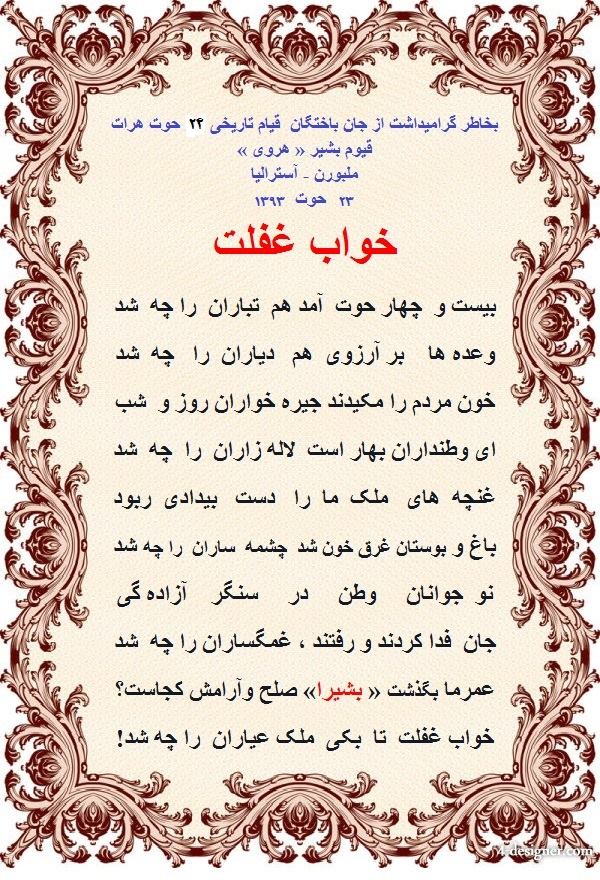 بخاطر گرامیداشت از جان باختگان قیام تاریخی ۲۴ حوت هرات
قیوم بشیر « هروی »
ملبورن - آسترالیا
۲۳ حوت ۱۳۹۳
خواب غفلت
بیست و چهار حوت آمد هم تباران را چه شد
وعده ها بر آرزوی هم دیاران را چه شد
خون مردم را مکیدند جیره خواران روز و شب
ای وطنداران بهار است لاله زاران را چه شد
غنچه های ملک ما را دست بیدادی ربود
باغ و بوستان غرق خون شد چشمه ساران را چه شد
نو جوانان وطن در سنگر آزاده گی
جان فدا کردند و رفتند ، غمگساران را چه شد
عمرما بگذشت « بشیرا» صلح وآرامش کجاست؟
خواب غفلت تا بکی ملک عیاران را چه شد!
4-designer.com